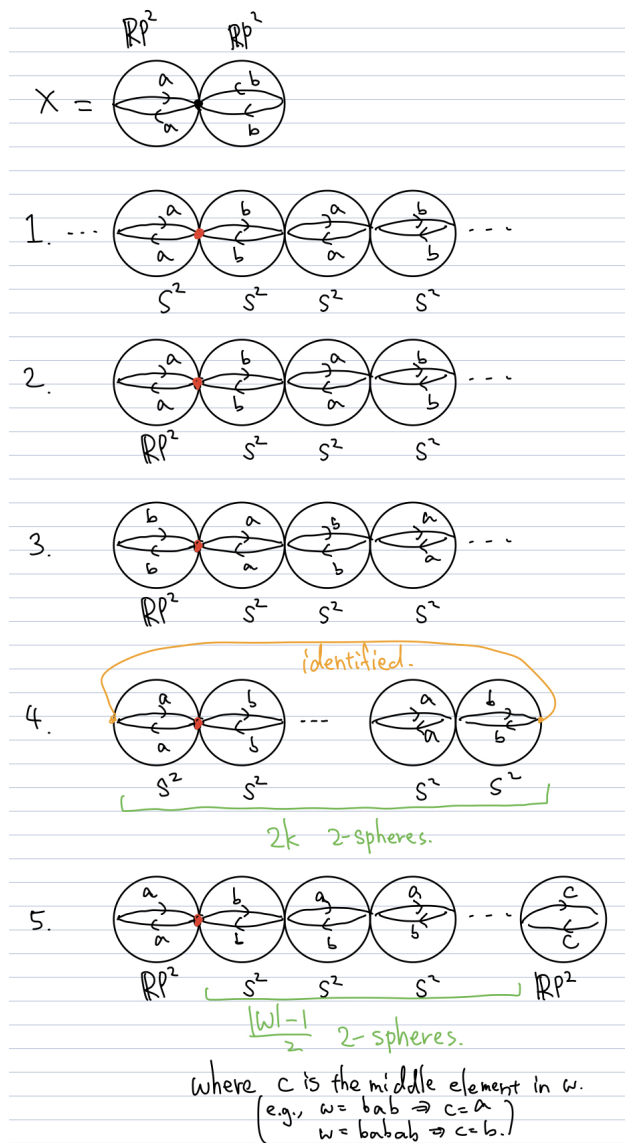 ℝP² ℝP²
X =
a b
a b
1. ···
a b a b ···
a b a b
S² S² S² S²
2.
a b a b ···
a b a b
ℝP² S² S² S²
3.
b a b a ···
b a b a
ℝP² S² S² S²
identified.
4.
a b ··· a b
a b a b
S² S² S² S²
2k 2-spheres.
5.
a b a a ··· c
a b b b c
ℝP² S² S² S² ℝP²
|w|-1
2 2-spheres.
where c is the middle element in w.
(e.g., w = bab ⇒ c = a
w = babab ⇒ c = b.)